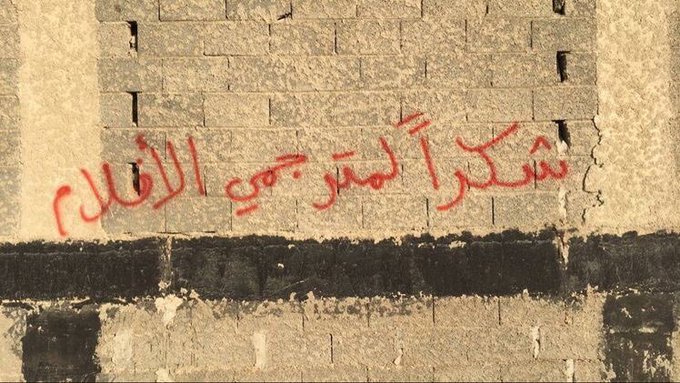 شكراً لمترجمي الأفلام